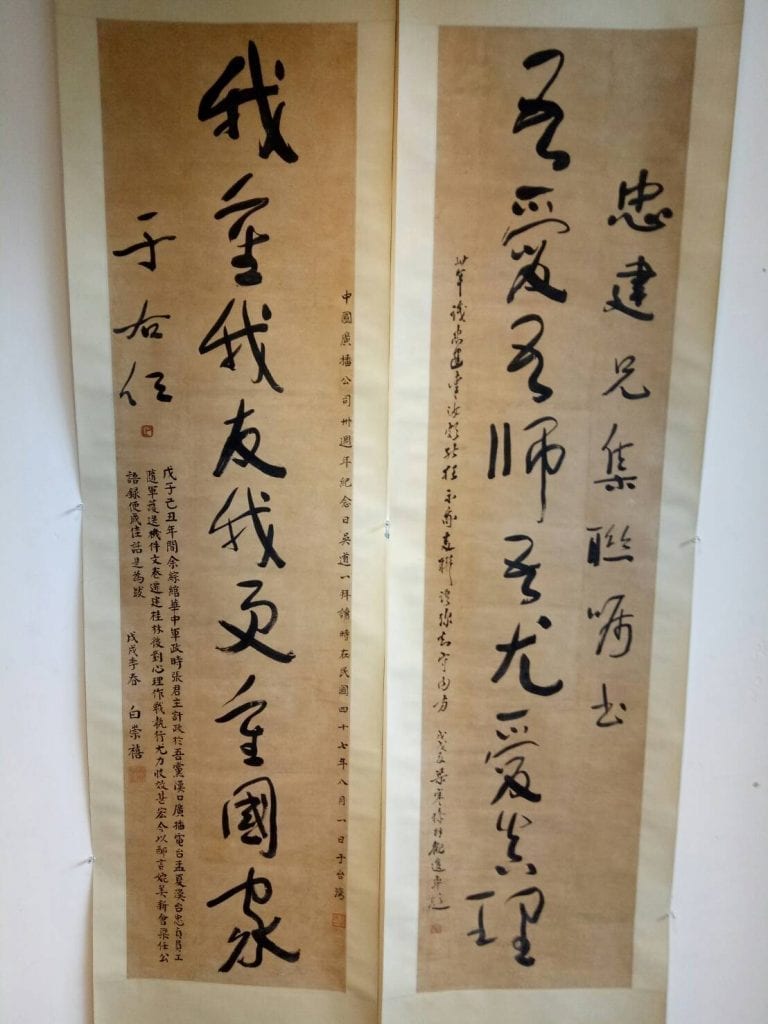 忠建兄集聯嘱书
吾愛吾師吾尤愛真理
卅年識忠建
中國廣播公司卅週年紀念日吳道一拜讀時在民國四十七年八月一日于台灣
我重我友我更重國家
于右任
戊子己丑年間余綜綰華中軍政時張君主計政於吾黨漢口廣播電台孟夏漢台忠貞員工
隨軍護送機件文卷還建桂林後對心理作戰執行尤力收效甚宏今以鄙言媲美新會梁任公
語錄便成佳話是為跋 戊戌季春 白崇禧